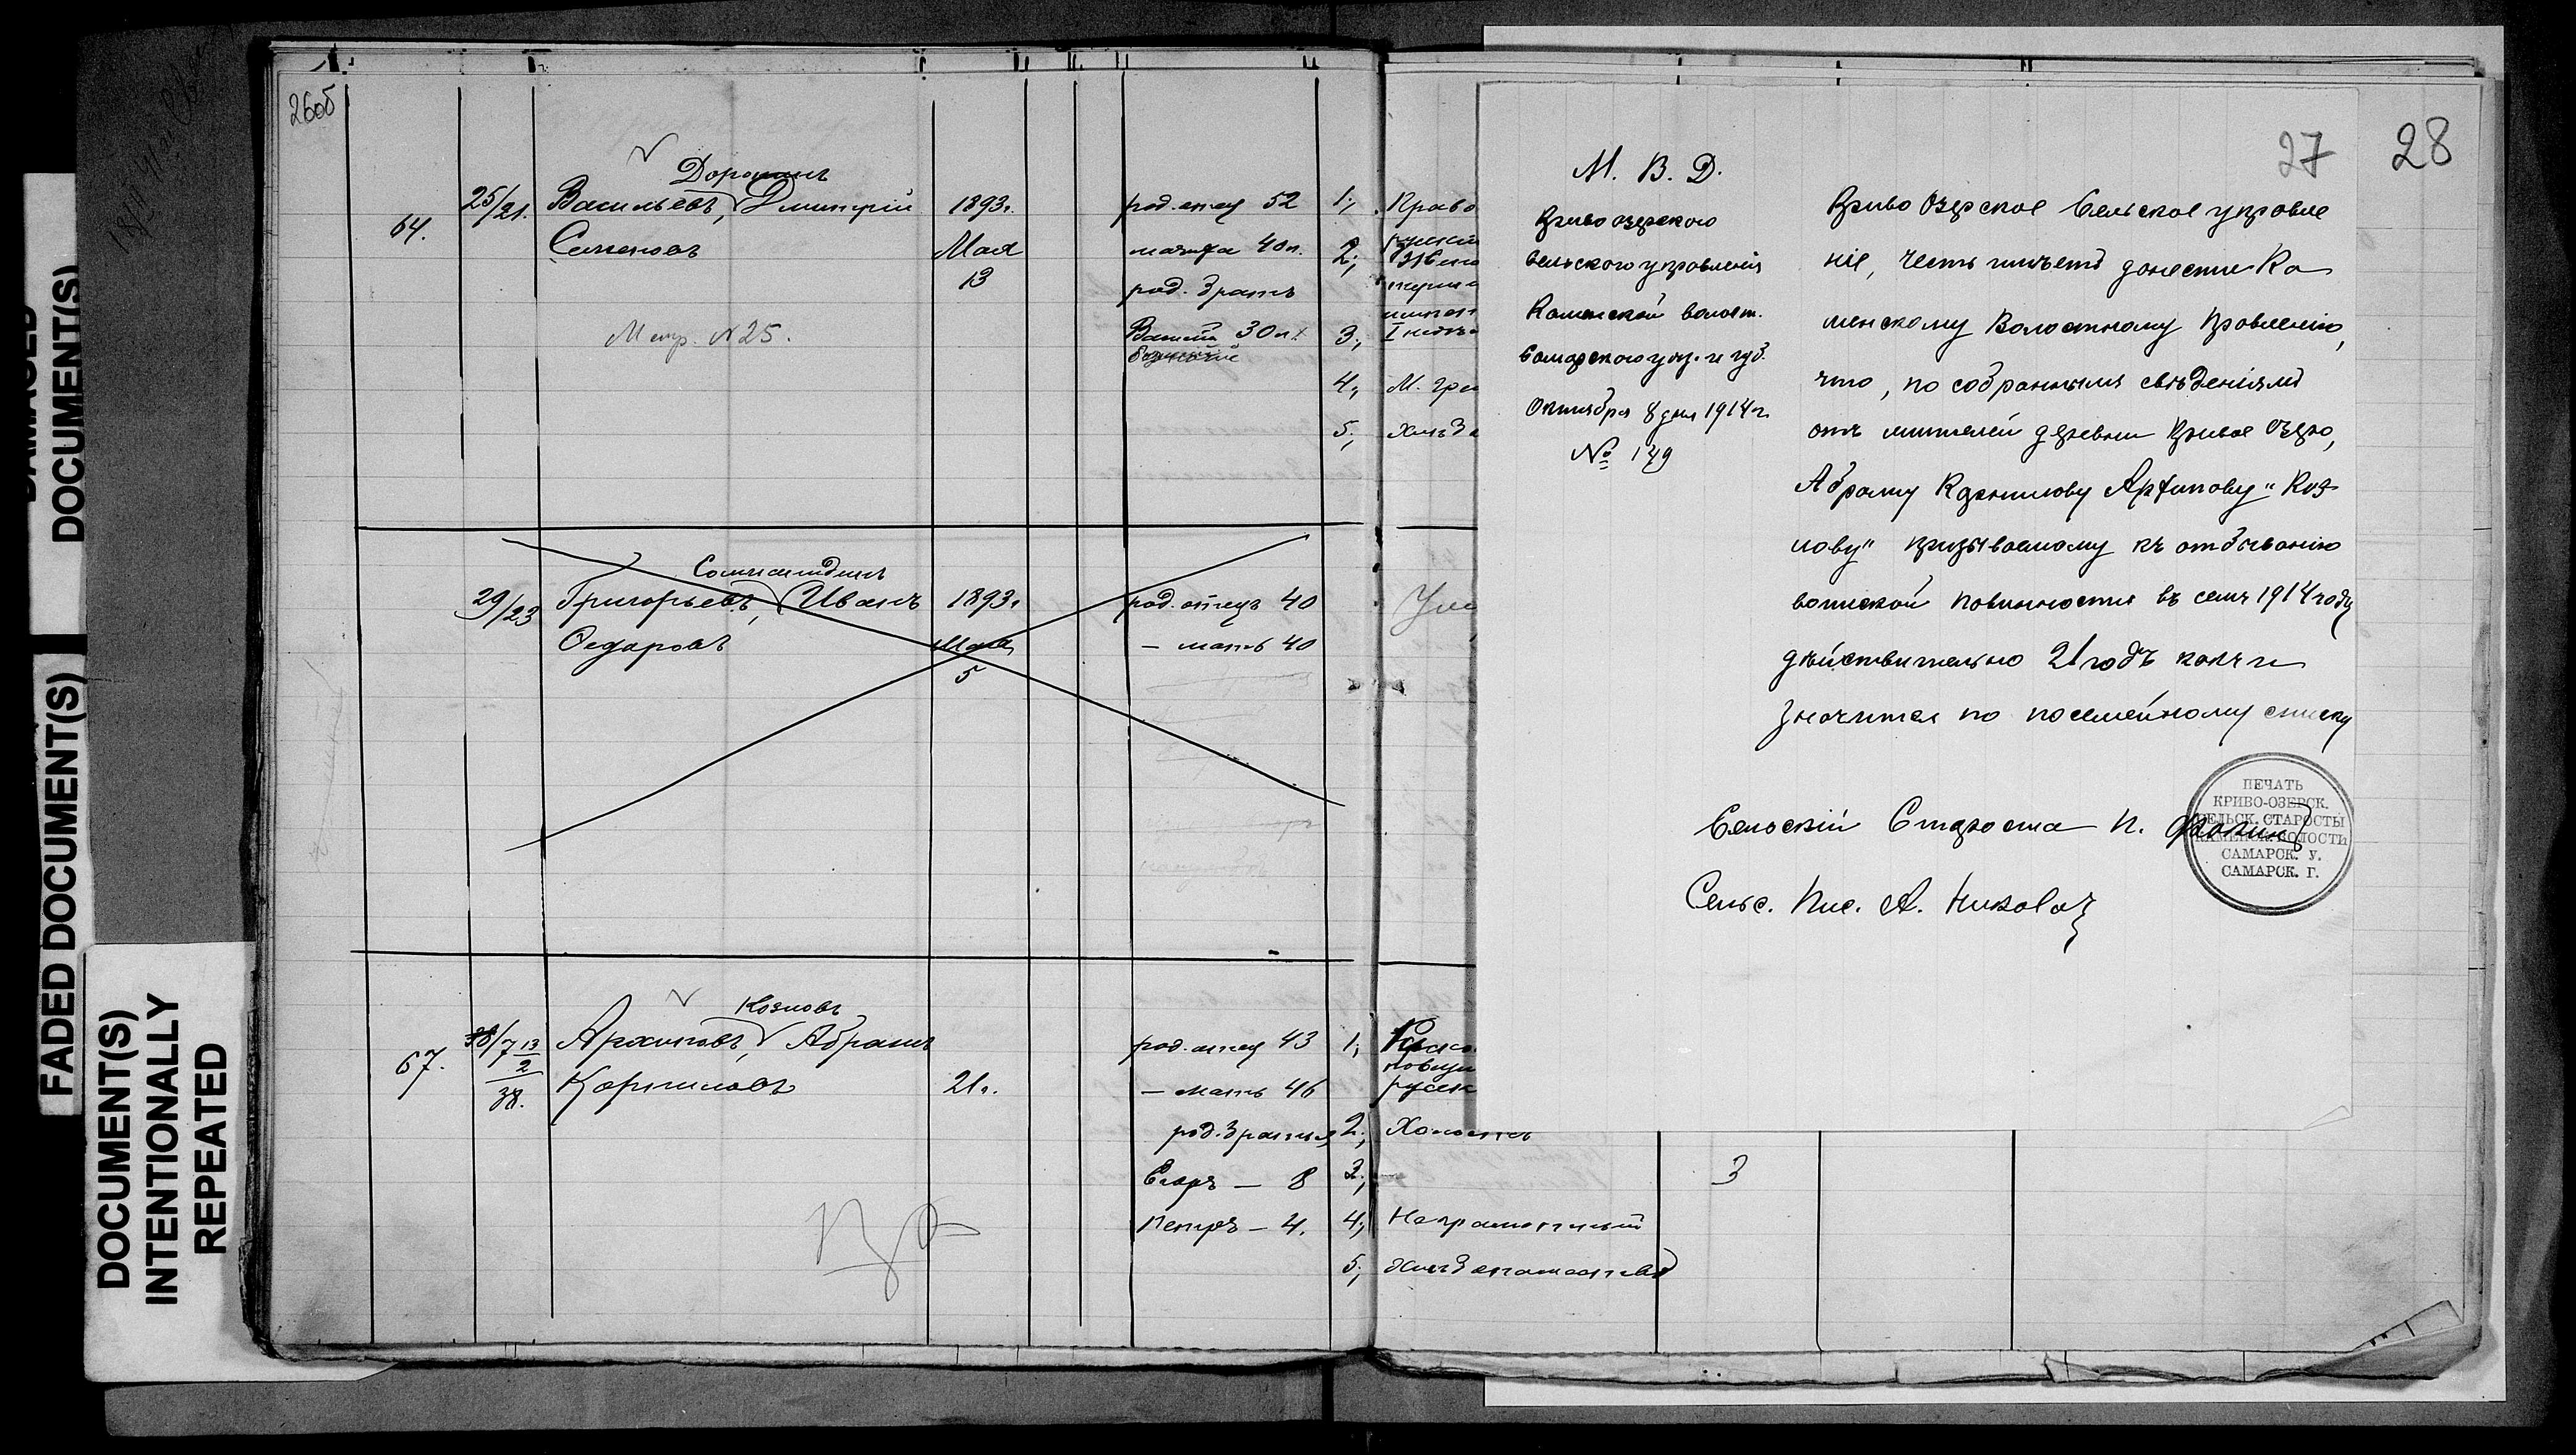 DOCUMENT(S)
FADED DOCUMENT(S)
DOCUMENT(S)
INTENTIONALLY
REPEATED
26об
64.
25/21.
Доронинъ
Васильевъ, Дмитрій
Семеновъ
Метр. №25.
1893г.
Мая
13
род. отец 52
мачиха 40л.
род. братъ
Василій 30л.
1;
2;
3;
4;
5;
29/23
Григорьевъ, Иванъ
Ѳедоровъ
1893г
Мая
5
род. отецъ 40
— мать 40
67.
38/7 13/2
38.
Козловъ
Архиповъ, Абрамъ
Корниловъ
21г.
род. отец 43
— мать 46
род. братья
Егоръ — 8
Петръ — 4.
1;
2; Холостъ
3;
4; Неграмотный
5; Хлѣбопашество
3
27 28
М. В. Д.
Криво озерского
сельского управленія
Каменской волост.
Самарского уез. и губ.
Октября 8 дня 1914 г.
№ 179
Криво Озерское Сельское управле
ніе, честь имѣетъ донести Ка
менскому Волостному Правленію,
что, по собраннымъ свѣденіямъ
отъ жителей деревни Кривое Озеро,
Абраму Корнилову Архипову "Коз
лову" призываемому къ отбыванію
воинской повинности въ семъ 1914 году
дѣйствительно 21 годъ какъ и
значится по посемейному списку
Сельскій Староста П. Фокин
Сельс. Пис. А.
ПЕЧАТЬ
КРИВО-ОЗЕРСК.
СЕЛЬСК. СТАРОСТЫ
КАМЕНСК. ВОЛОСТИ
САМАРСК. У.
САМАРСК. Г.